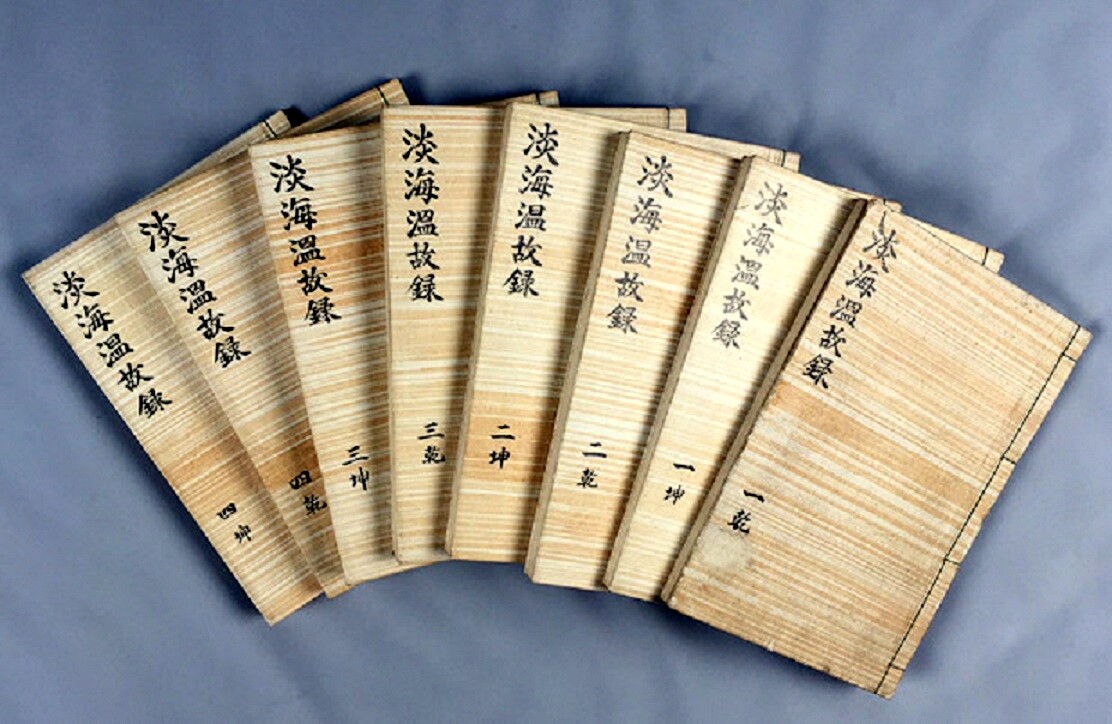 淡海温故録
一乾
淡海温故録
一坤
淡海温故録
二乾
淡海温故録
二坤
淡海温故録
三乾
淡海温故録
三坤
淡海温故録
四乾
淡海温故録
四坤